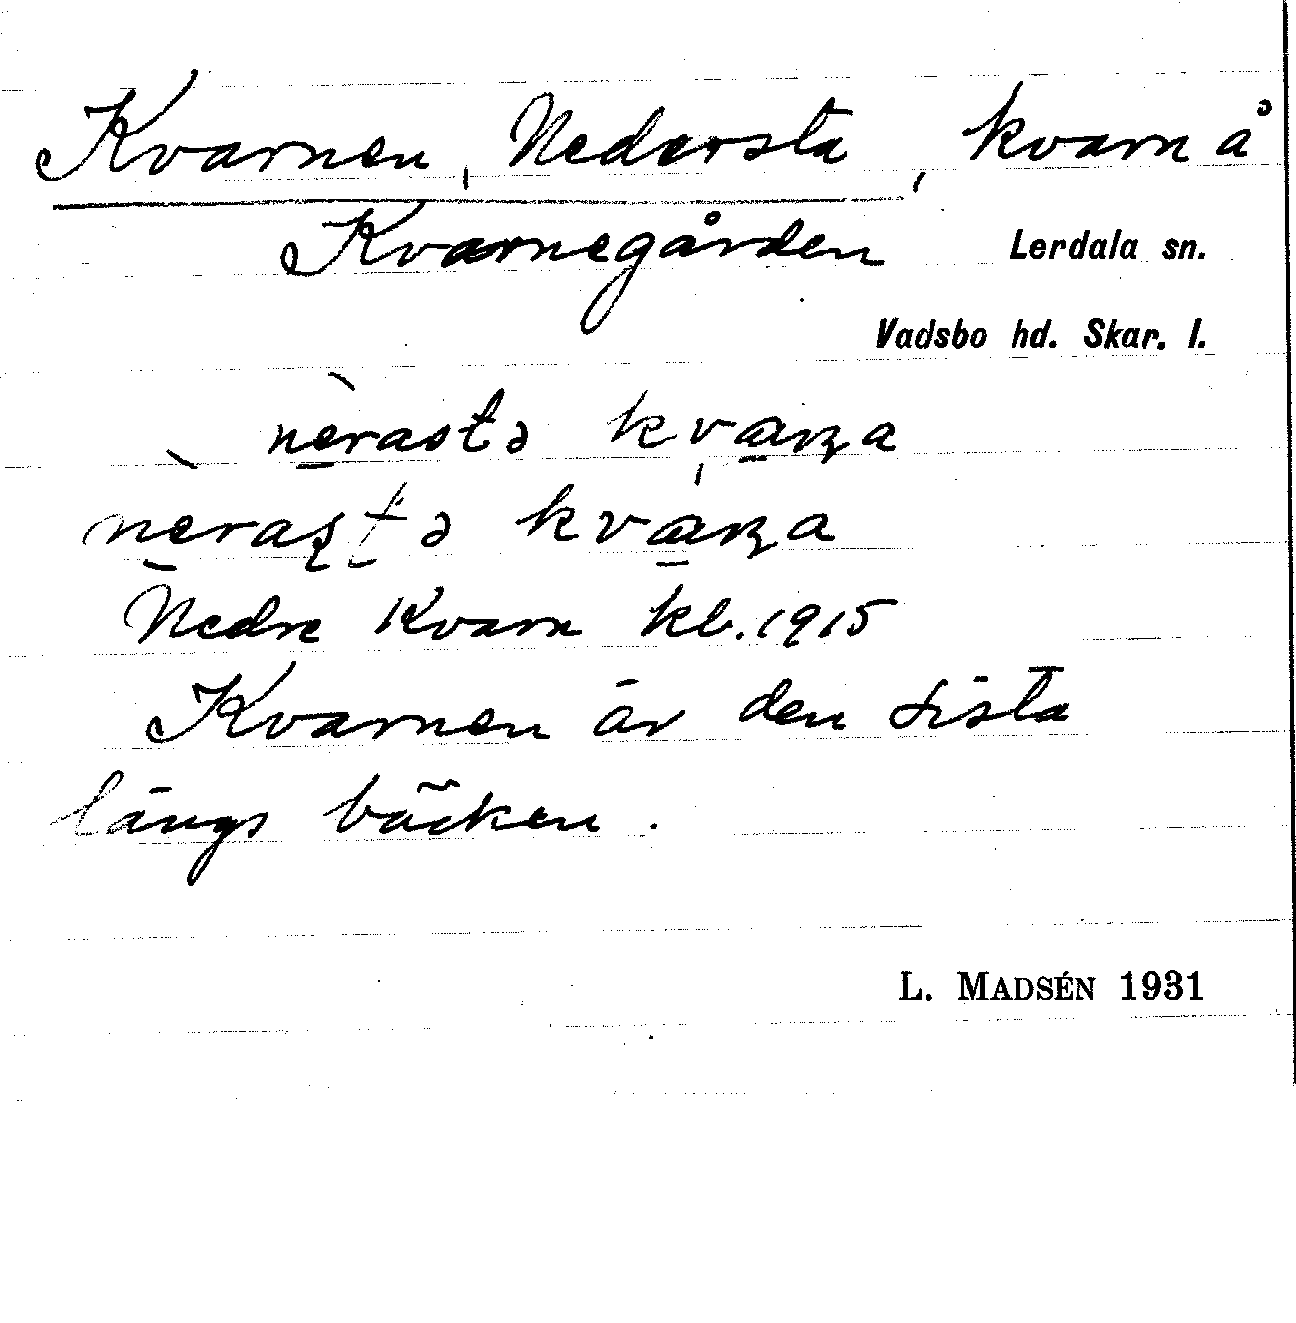 Kvarnen, Nedersta, kvarn å
Kvarnegården Lerdala sn.
Vadsbo hd. Skar. l.
nèrastə kvaɳa
nèraʂʈə kváɳa
Nedre Kvarn kb. 1915
Kvarnen är den sista
längs bäcken.
L. MADSÉN 1931